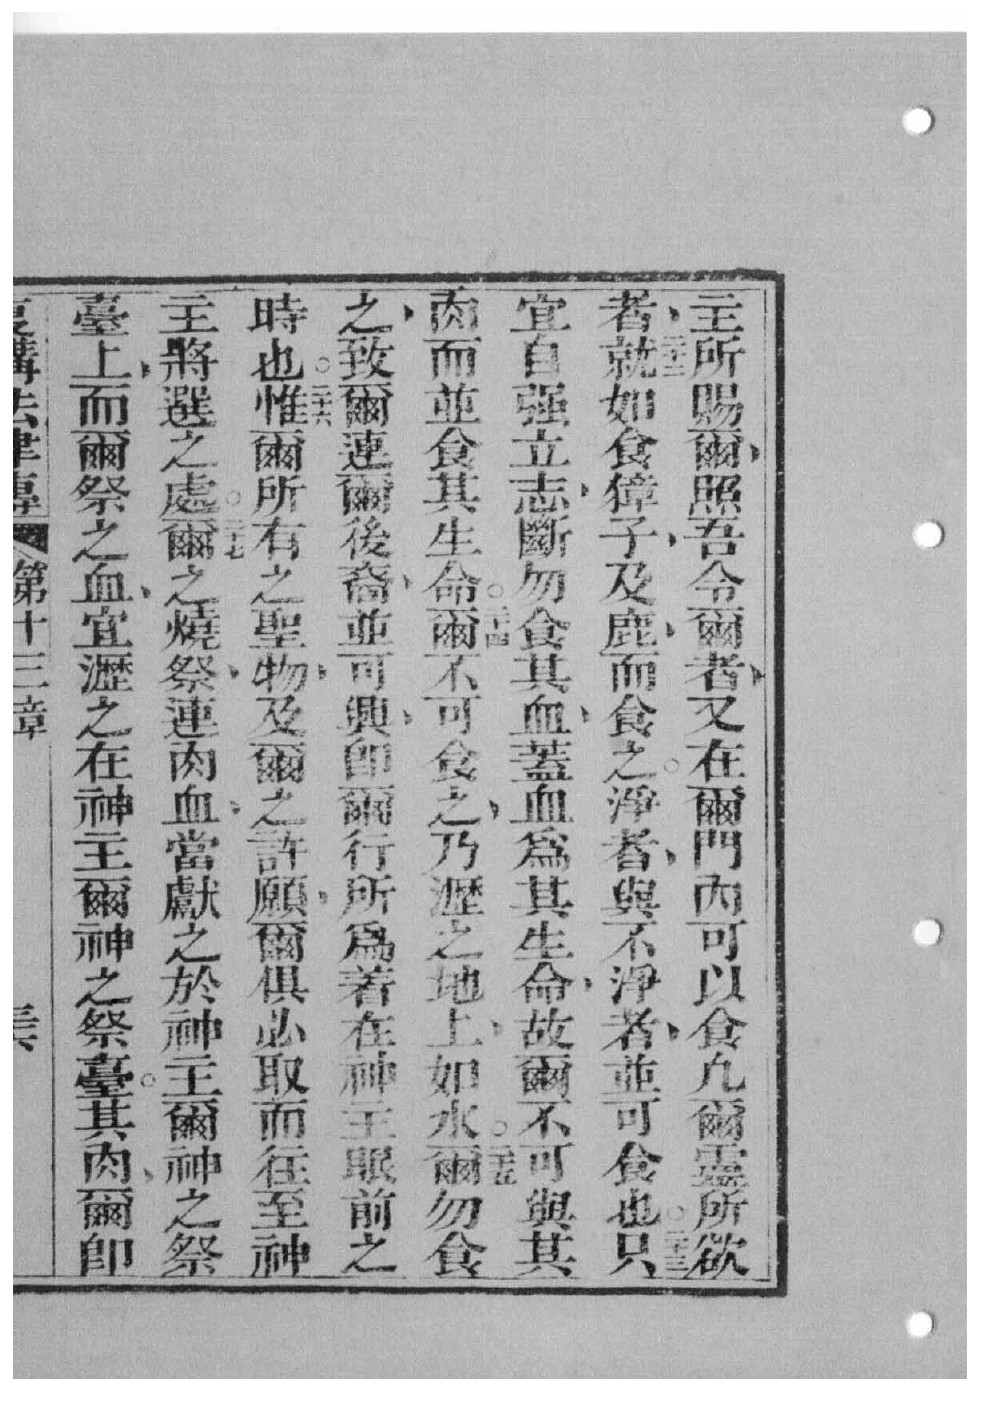 主所賜爾、照吾令爾者、又在爾門內可以食凡爾靈所欲
者、二十二就如食獐子、及鹿、而食之。淨者、與不淨者、並可食也。二十三只
宜自强立志、斷勿食其血、蓋血爲其生命、故爾不可與其
肉而並食其生命。二十四爾不可食之、乃瀝之地上、如水。二十五爾勿食
之、致爾連爾後裔、並可興、卽爾行所爲着在神主眼前之
時也。二十六惟爾所有之聖物、及爾之許願、爾俱必取而往至神
主將選之處。二十七爾之燒祭、連肉血、當獻之於神主爾神之祭
臺上、而爾祭之血、宜瀝之在神主爾神之祭臺。其肉、爾卽
復講法律傳 第十二章 三六